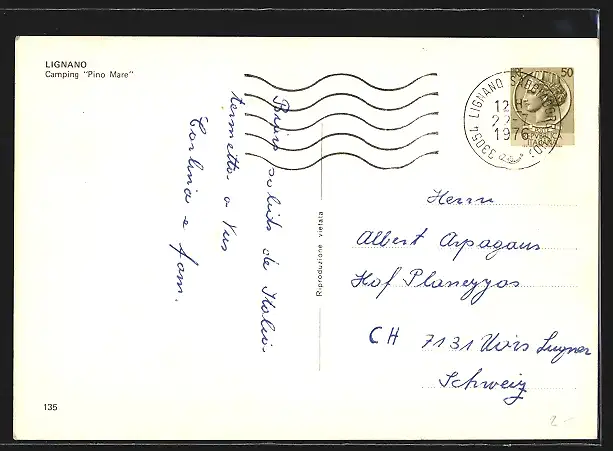 LIGNANO
Camping "Pino Mare"
salids de Italia
termetta a Vus
Carlina e fam.
Riproduzione vietata
50
33054 LIGNANO SABBIADORO (UD)
12H
22-7
1976
Herrn
Albert Arpagaus
Hof Planezzas
CH 7131 Uors Lugnez
Schweiz
135
2-